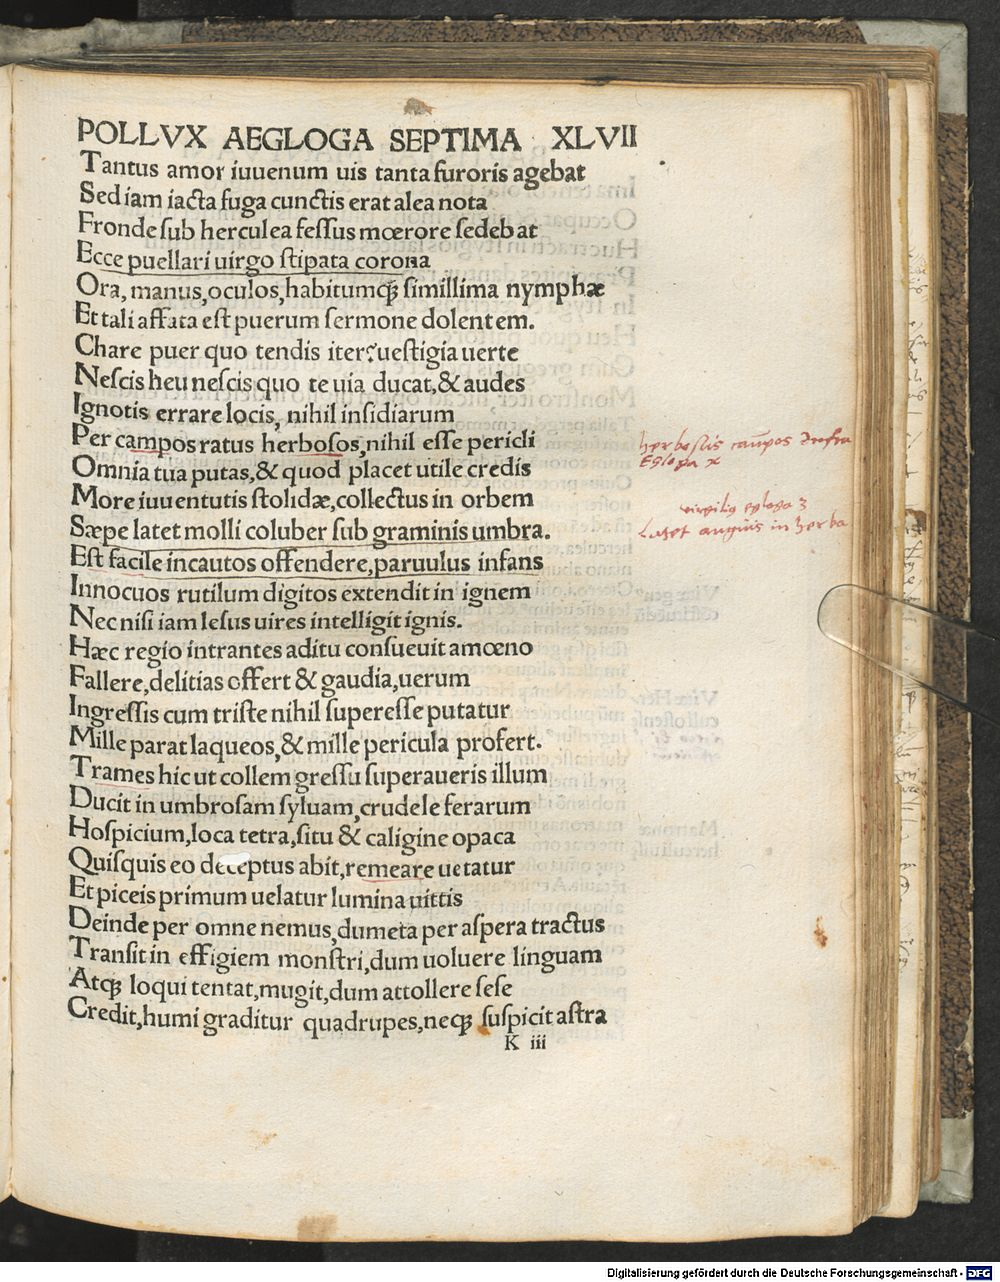 POLLVX AEGLOGA SEPTIMA XLVII
Tantus amor iuuenum uis tanta furoris agebat
Sed iam iacta fuga cunctis erat alea nota
Fronde sub herculea fessus mœrore sedebat
Ecce puellari uirgo stipata corona
Ora, manus, oculos, habitumqꝫ simillima nymphæ
Et tali affata est puerum sermone dolentem.
Chare puer quo tendis iter? uestigia uerte
Nescis heu nescis quo te uia ducat, & audes
Ignotis errare locis, nihil insidiarum
Per campos ratus herbosos, nihil esse pericli
herboscis Infra
Egloga x
Omnia tua putas, & quod placet utile credis
More iuuentutis stolidæ, collectus in orbem
virgiliꝰ egloga 3
Sæpe latet molli coluber sub graminis umbra.
Latet anguis in herba
Est facile incautos offendere, paruulus infans
Innocuos rutilum digitos extendit in ignem
Nec nisi iam lesus uires intelligit ignis.
Hæc regio intrantes aditu consueuit amœno
Fallere, delitias offert & gaudia, uerum
Ingressis cum triste nihil superesse putatur
Mille parat laqueos, & mille pericula profert.
Trames hic ut collem gressu superaueris illum
Ducit in umbrosam syluam, crudele ferarum
Hospicium, loca tetra, situ & caligine opaca
Quisquis eo deceptus abit, remeare uetatur
Et piceis primum uelatur lumina uittis
Deinde per omne nemus, dumeta per aspera tractus
Transit in effigiem monstri, dum uoluere linguam
Atqꝫ loqui tentat, mugit, dum attollere sese
Credit, humi graditur quadrupes, neqꝫ suspicit astra
K iii
Digitalisierung gefördert durch die Deutsche Forschungsgemeinschaft - DFG